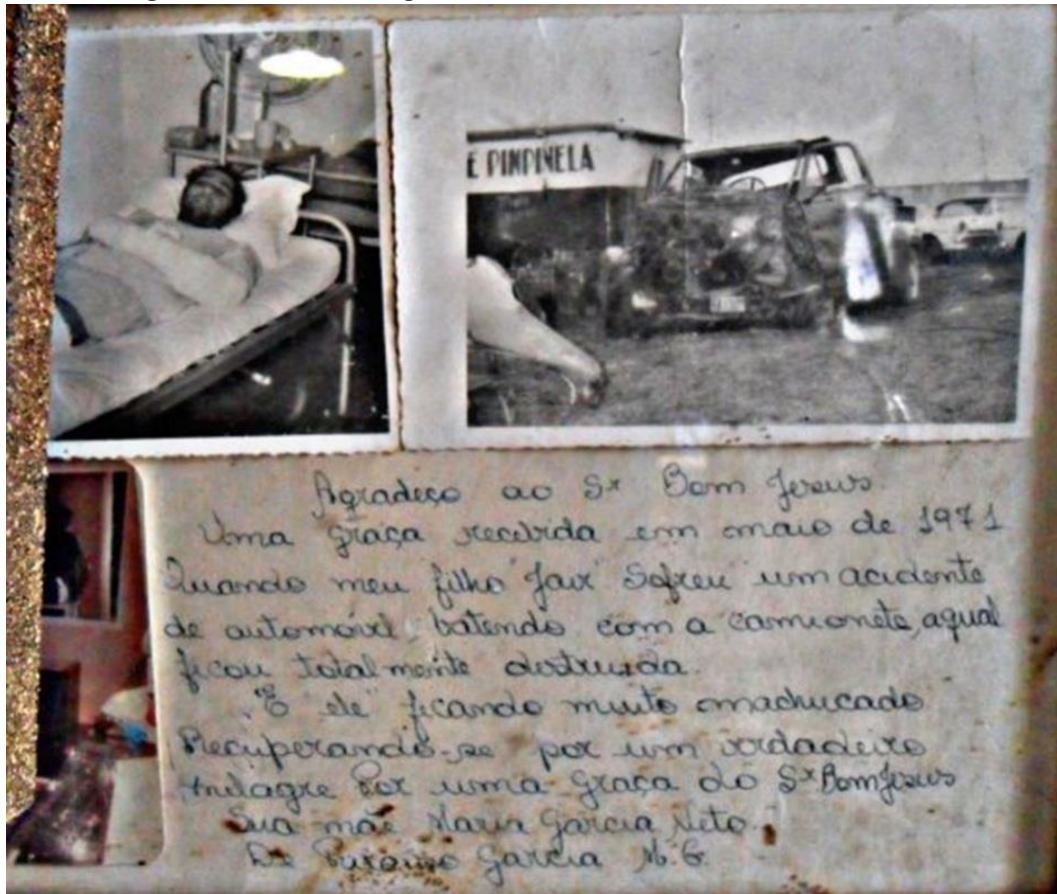 E PINPINELA
Agradeço ao Sr Bom Jesus.
Uma graça recebida em maio de 1971
Quando meu filho "Jair" Sofreu um acidente
de automóvel, batendo com a camionete, aqual
ficou totalmente destruida.
"E ele" ficando muito machucado
Recuperando-se por um verdadeiro
milagre Por uma graça do Sr Bom Jesus
Sua mãe Maria Garcia Neto.
De Garcia M.G.